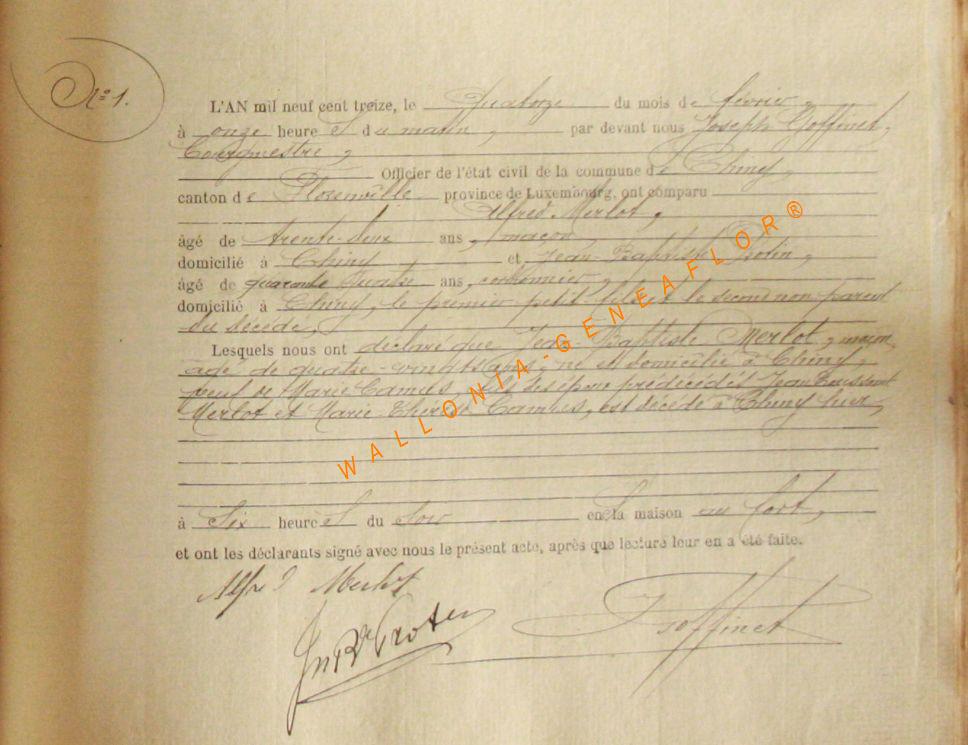 N° 1.
L'AN mil neuf cent treize, le quatorze du mois de février,
à onze heures du matin, par devant nous Joseph Goffinet,
Bourgmestre,
Officier de l'état civil de la commune de Chiny,
canton de Florenville province de Luxembourg, ont comparu
Alfred Merlot,
âgé de trente-deux ans, maçon,
domicilié à Chiny, et Jean-Baptiste
âgé de quarante quatre ans, cordonnier,
domicilié à Chiny, le premier petit fils et le second non parent
du décédé,
Lesquels nous ont déclaré que Jean Baptiste Merlot, maçon,
âgé de quatre-vingts ans, né et domicilié à Chiny,
veuf de Marie Camus, fils des époux prédécédés Jean Toussaint
Merlot et Marie Thérèse Cambus, est décédé à Chiny hier,
à Six heures du soir en sa maison au fort,
et ont les déclarants signé avec nous le présent acte, après que lecture leur en a été faite.
Alfred Merlot
Jn Bte
J Goffinet
WALLONIA-GENEAFLOR®